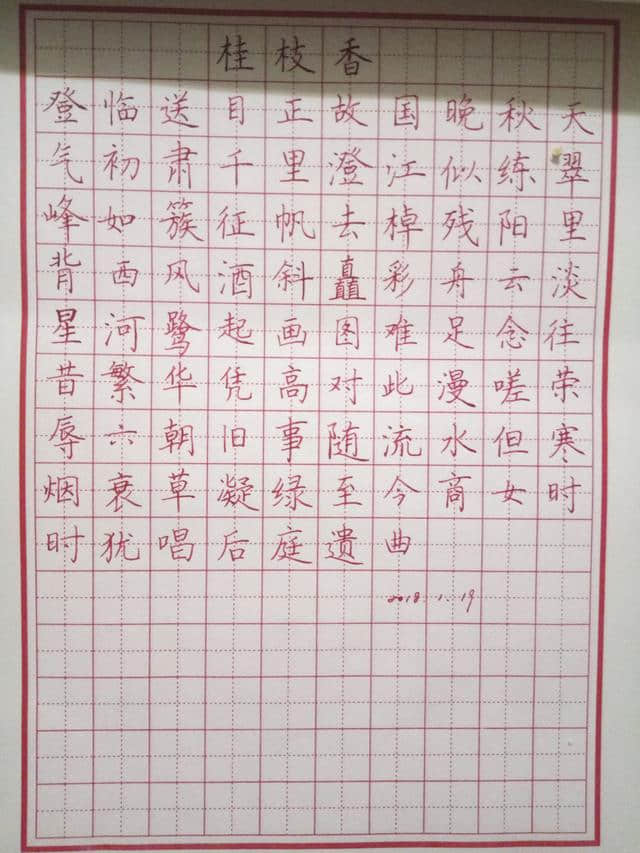 桂枝香
登临送目正故国晚秋天
气初肃千里澄江似练翠
峰如簇征帆去棹残阳里
背西风酒斜矗彩舟云淡
星河鹭起画图难足念往
昔繁华凭高对此漫嗟荣
辱六朝旧事随流水但寒
烟衰草凝绿至今商女时
时犹唱后庭遗曲
2018.1.19